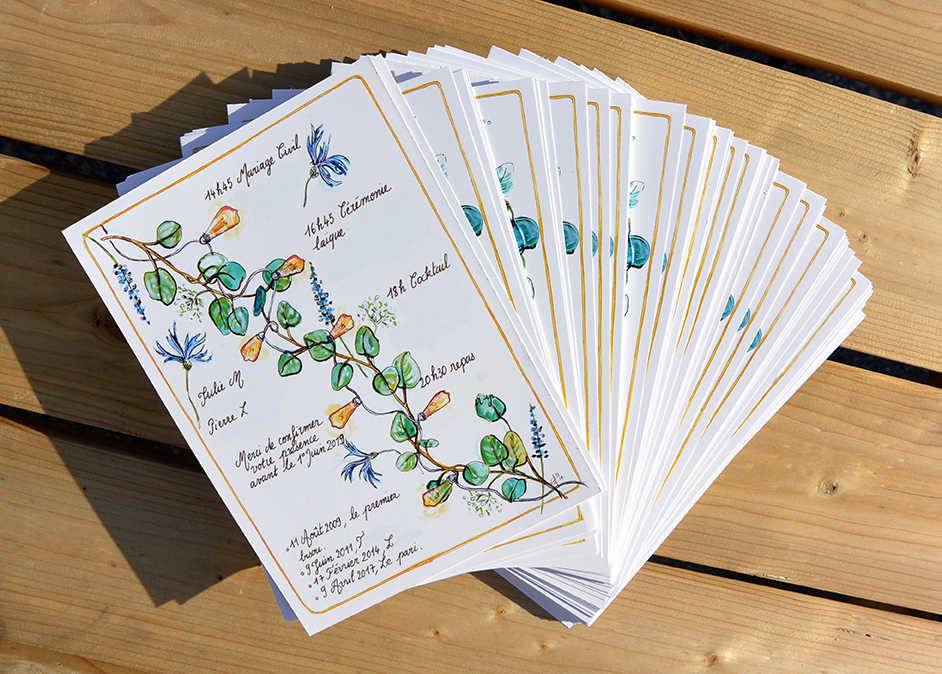 14h45 Mariage Civil
16h45 Cérémonie
laïque
18h Cocktail
20h30 repas
Julie M
Pierre L
Merci de confirmer
votre présence
avant le 1er Juin 2019
11 Août 2009, le premier
bisou.
9 Juin 2011, T
17 Février 2014, L
9 Avril 2017, Le pari.